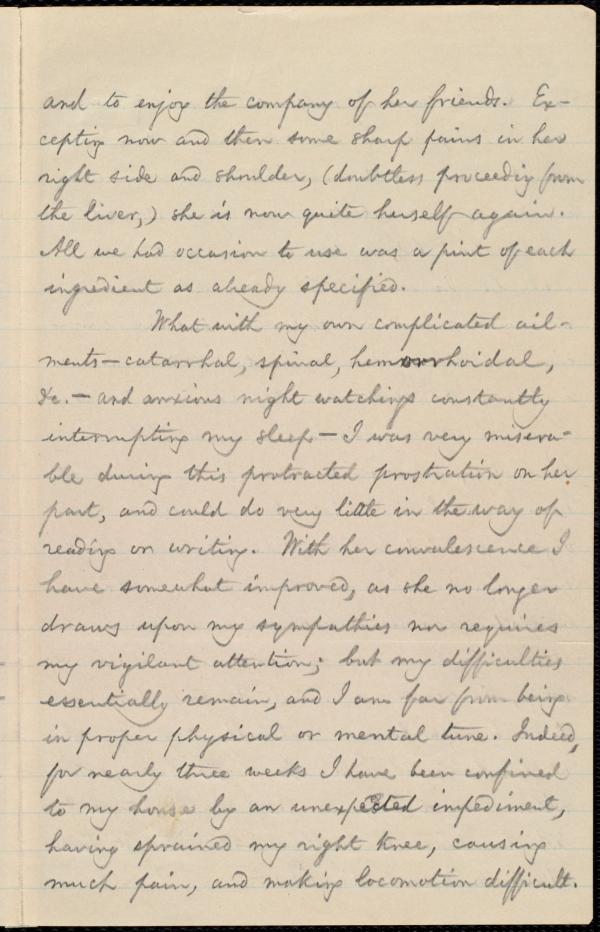 and to enjoy the company of her friends. Ex-
cepting now and then some sharp pains in her
right side and shoulder, (doubtless proceeding from
the liver,) she is now quite herself again.
All we had occasion to use was a pint of each
ingredient as already specified.
What with my own complicated ail-
ments—catarrhal, spinal, hemorrhoidal,
&c.—and anxious night watchings constantly
interrupting my sleep—I was very misera-
ble during this protracted prostration on her
part, and could do very little in the way of
reading or writing. With her convalescence I
have somewhat improved, as she no longer
draws upon my sympathies nor requires
my vigilant attention; but my difficulties
essentially remain, and I am far from being
in proper physical or mental tune. Indeed,
for nearly three weeks I have been confined
to my house by an unexpected impediment,
having sprained my right knee, causing
much pain, and making locomotion difficult.